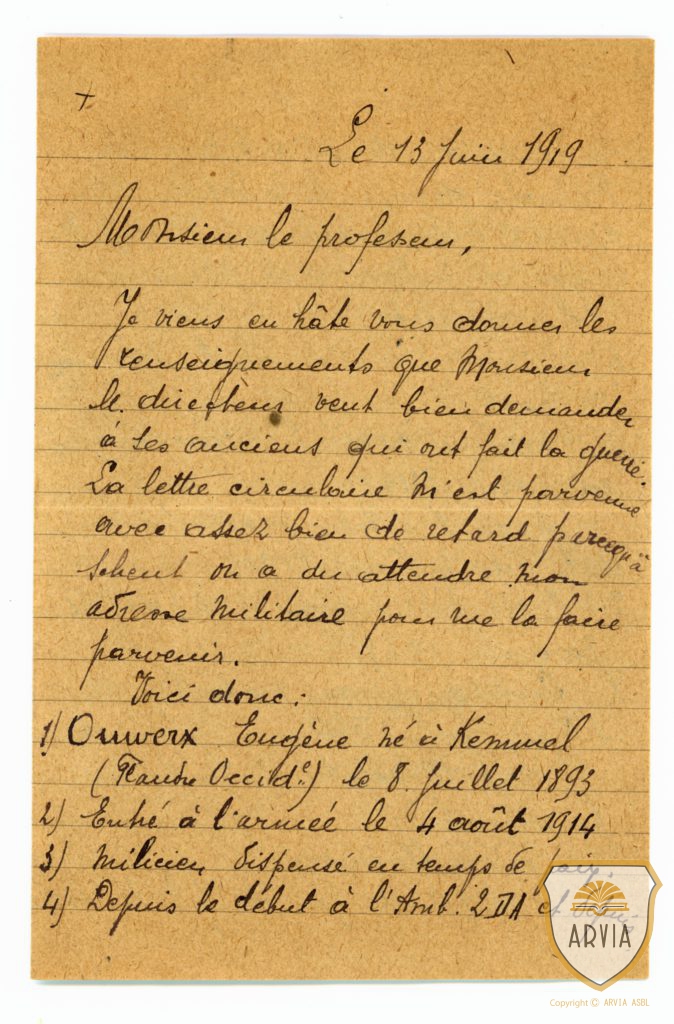 +
Le 13 Juin 1919
Monsieur le professeur,
Je viens en hâte vous donner les
renseignements que Monsieur
le directeur veut bien demander
à ses anciens qui ont fait la guerre.
La lettre circulaire m'est parvenue
avec assez bien de retard parcequ'à
on a du attendre mon
adresse militaire pour me la faire
parvenir.
Voici donc :
1) Ouwerx Eugène né à Kemmel
(Flandre Occid.e) le 8 Juillet 1893
2) Entré à l'armée le 4 août 1914
3) Milicien dispensé en temps de paix.
4) Depuis le début à l'Amb. 2DA et
ARVIA
Copyright © ARVIA ASBL